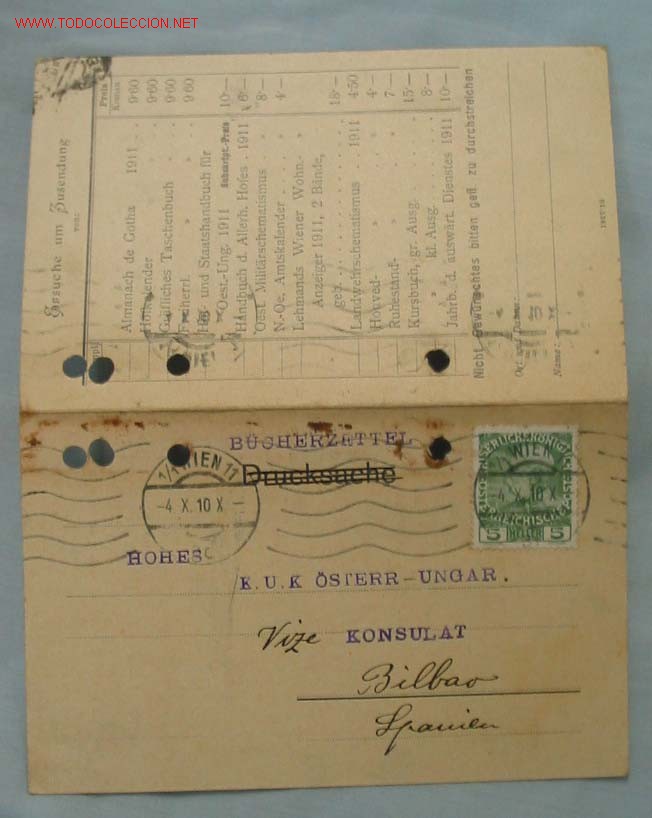 www.TODOCOLECCION.NET
Ersuche um Zusendung
von:
Preis
Kronen
Almanach de Gotha 1911 . 9·60
Hofkalender 9·60
Gräfliches Taschenbuch 9·60
Freiherrl. " 9·60
Hof- und Staatshandbuch für
Oest.-Ung. 1911 Subskript.-Preis 10·—
Handbuch d. Allerh. Hofes . 1911 6·—
Oest. Militärschematismus . 8·—
N.-Oe. Amtskalender . . . 4·—
Lehmanns Wiener Wohn.-
Anzeiger 1911, 2 Bände,
geb. . . . . . . . . . 18·—
Landwehrschematismus . . 1911 4·50
Honved- " 4·—
Ruhestand- " 7·—
Kursbuch, gr. Ausg. . . . 15·—
" kl. Ausg. . . . 8·—
Jahrb. d. auswärt. Dienstes 1911 10·—
Nicht Gewünschtes bitten gefl. zu durchstreichen
Ort und Datum:
Name:
BÜCHERZETTEL
Drucksache
1/1 WIEN 11
-4 X. 10 X -
WIEN
4 X. 10 X
5 HELLER 5
HOHES
K.U.K ÖSTERR-UNGAR.
Vize KONSULAT
Bilbao
Spanien